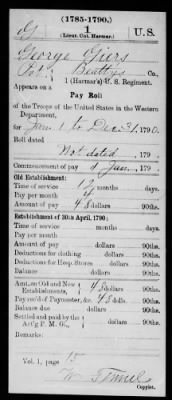 (1785-1790.)
G 1 U.S.
(Lieut. Col. Harmar.)
George Giers
Pvt., Beatty's Co.,
1 (Harmar's) U. S. Regiment.
Appears on a
Pay Roll
of the Troops of the United States in the Western
Department,
for Jan 1 to Dec 31, 1790.
Roll dated
Not dated, 179 .
Commencement of pay 1 Jan, 179 .
Old Establishment:
Time of service 12 months days.
Pay per month 4
Amount of pay 48 dollars 90ths.
Establishment of 30th April, 1790:
Time of service months days.
Pay per month
Amount of pay dollars 90ths.
Deductions for clothing dollars 90ths.
Deductions for Hosp. Stores dollars 90ths.
Balance due dollars 90ths.
Amt. on Old and New
Establishments, 48 dollars 90ths.
Pay rec'd of Paymaster, for 48 dolls. 90ths.
Balance due dollars 90ths.
Settled and paid by the
Act'g P. M. G., dollars 90ths.
Remarks:
Vol. 1, page 15
Copyist.